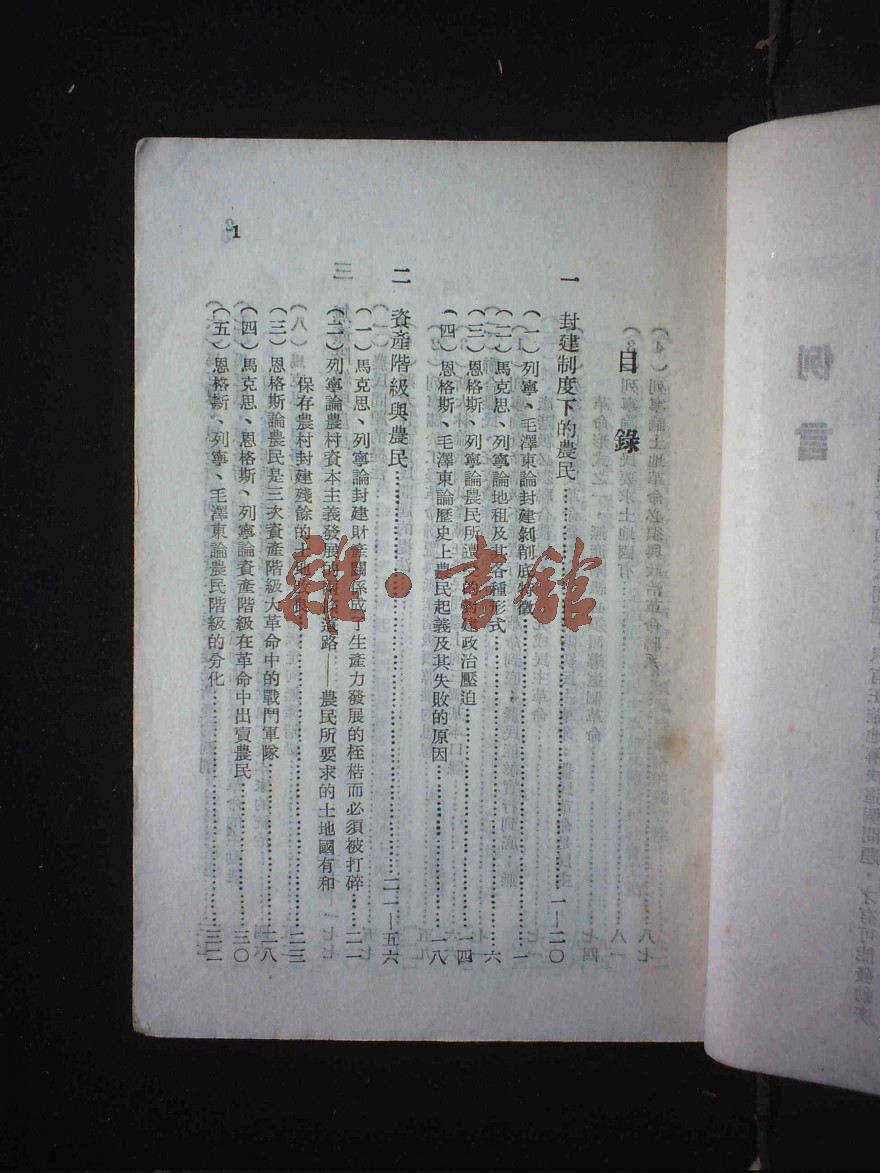 例言
目錄
一 封建制度下的農民……一—二〇
（一）列寧、毛澤東論封建剝削底特徵……一
（二）馬克思、列寧論地租及其各種形式……六
（三）恩格斯、列寧論農民所遭的封建政治壓迫……一四
（四）恩格斯、毛澤東論歷史上農民起義及其失敗的原因……一八
二 資產階級與農民……二一—五六
（一）馬克思、列寧論封建財產關係成了生產力發展的桎梏而必須被打碎……二一
（二）列寧論農村資本主義發展的兩條道路——農民所要求的土地國有和
保存農村封建殘餘的土地改良……二三
（三）恩格斯論農民是三次資產階級大革命中的戰鬥軍隊……二八
（四）馬克思、恩格斯、列寧論資產階級在革命中出賣農民……三〇
（五）恩格斯、列寧、毛澤東論農民階級的分化……三二
1
雜·書館